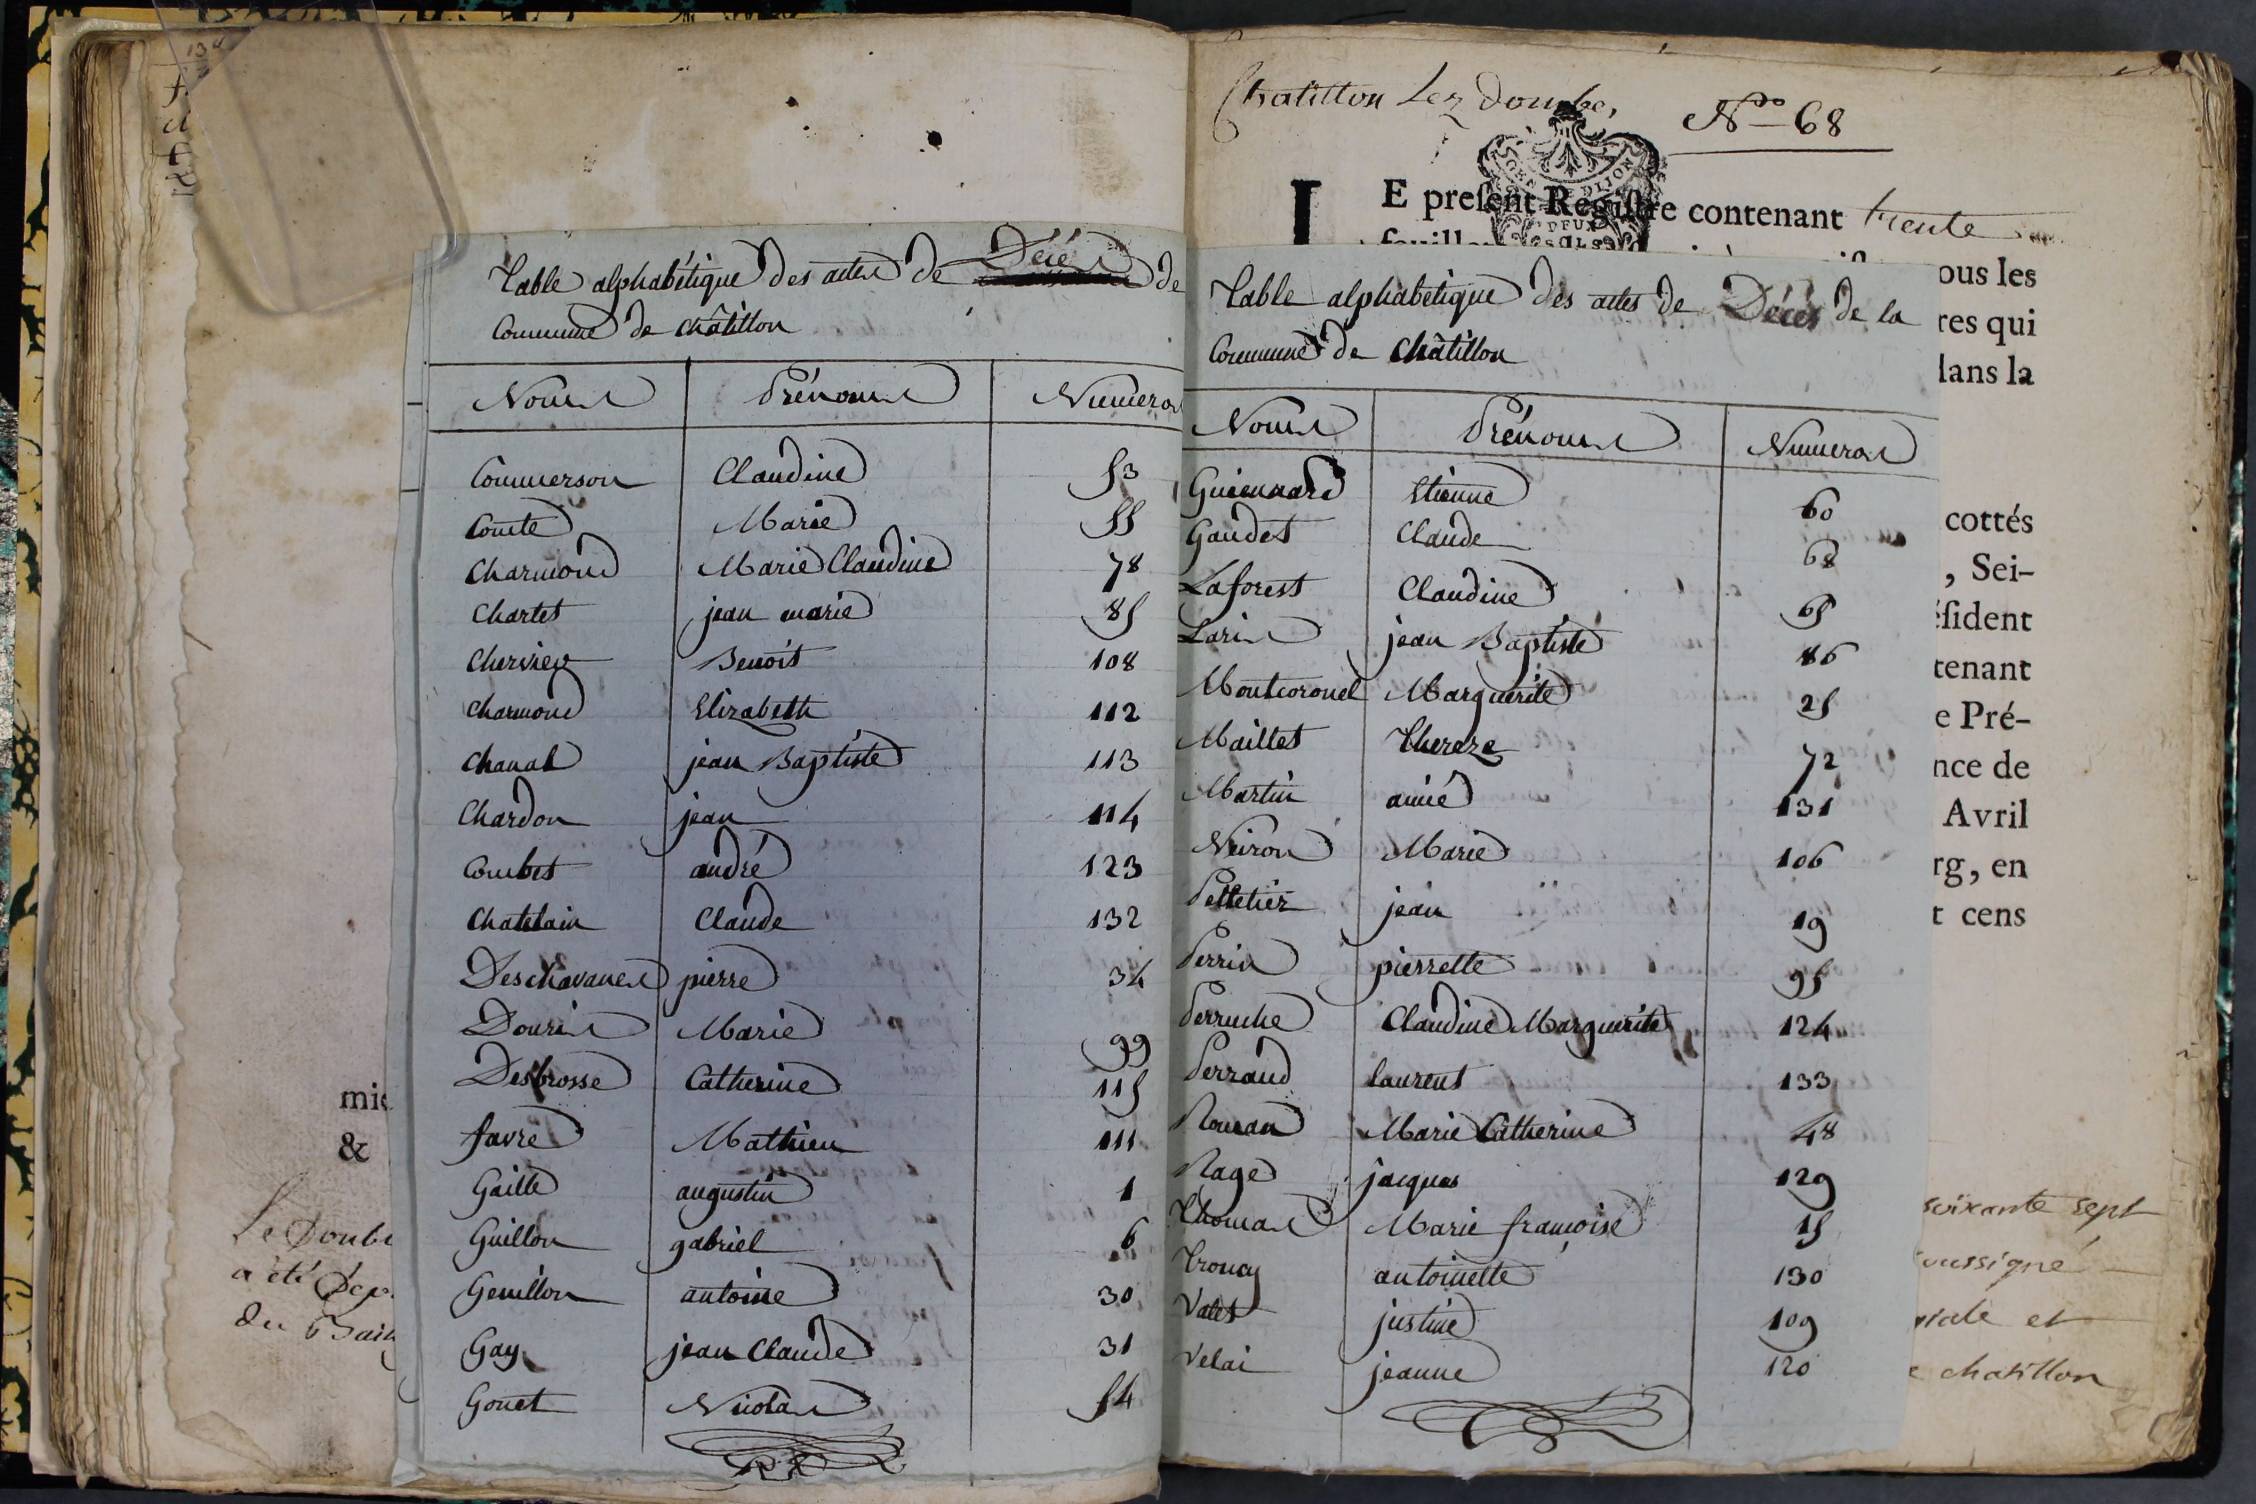 Table alphabétique des actes de Décés de
Commune de châtillon
Noms Prénoms Numeros
Commerson Claudine 53
Comte Marie 55
Charmond Marie Claudine 78
Chartet jean marie 85
Chervier Benoit 108
Charmond Elizabeth 112
Chanal jean Baptiste 113
Chardon jean 114
Combet andré 123
Chatelain Claude 132
Deschavanes pierre 34
Douris Marie 99
Desbrosse Catherine 115
favre Mathieu 111
Gaille augustin 1
Guillon gabriel 6
Genillon antoine 30
Gay jean Claude 31
Gonet Nicolas 54
mie
&
Le Doubl
a été Dep
du Bail
Chatillon Lez Dombe, No 68
LE present Registre contenant trente
DIJON
DEUX
SOLS
ous les
res qui
dans la
Table alphabétique des actes de Décés de la
Commune de Châtillon
Noms Prénoms Numeros
Guiennard Etienne 60
Gaudet Claude 68
Laforest Claudine 65
Laris jean Baptiste 86
Montcoronel Marguerite 25
Maillet Thereze 72
Martin aimé 131
Neiron Marie 106
Pelletier jean 19
Perrin pierrette 95
Perruche Claudine Marguerite 124
Perraud laurent 133
Roman Marie Catherine 48
Rage jacques 129
Thomas Marie francoise 15
Troncy antoinette 130
Valet justine 109
Velai jeanne 120
cottés
, Sei-
ésident
tenant
e Pré-
nce de
Avril
rg, en
t cens
soixante sept
oussigné
riale et
e chatillon